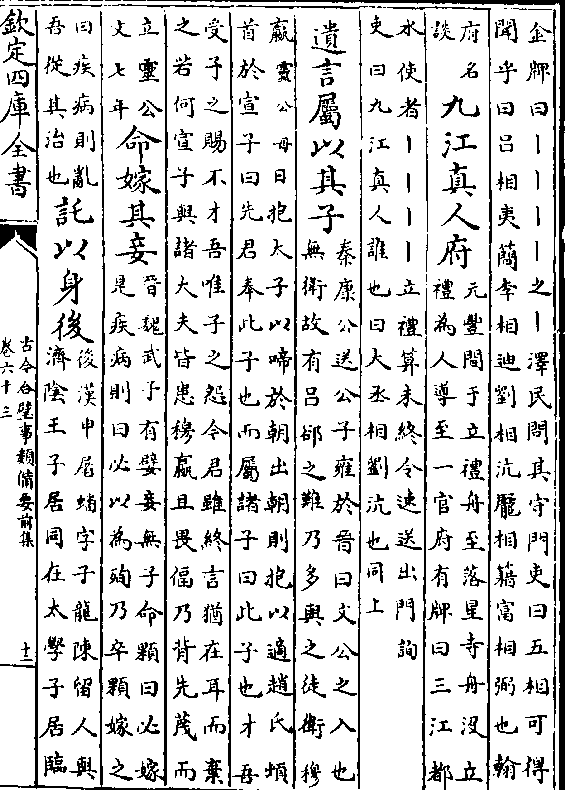 金牌曰丨丨丨丨之丨澤民問其守門吏曰五相可得
聞乎曰呂相夷簡李相迪劉相沆龐相籍富相弼也翰
府名
談
九江真人府
元豐間于立禮舟至落星寺舟沒立
禮為人導至一官府有牌曰三江都
水使者丨丨丨丨立禮算未終令速送出門詢
吏曰九江真人誰也曰大丞相劉沆也同上
遺言屬以其子
秦康公送公子雍於晉曰文公之入也
無衛故有呂郤之難乃多與之徒衛穆
嬴靈公母日抱太子以啼於朝出朝則抱以適趙氏頓
首於宣子曰先君奉此子也而屬諸子曰此子也才吾
受子之賜不才吾唯子之怨今君雖終言猶在耳而棄
之若何宣子與諸大夫皆患穆嬴且畏偪乃背先蔑而
立靈公
文七年
命嫁其妾
晉魏武子有嬖妾無子命顆曰必嫁
是疾病則曰必以為殉乃卒顆嫁之
曰疾病則亂
吾從其治也
託以身後
後漢申屠蟠字子龍陳留人與
濟陰王子居同在太學子居臨
欽定四庫全書
古今合璧事類備要前集
卷六十三
十二